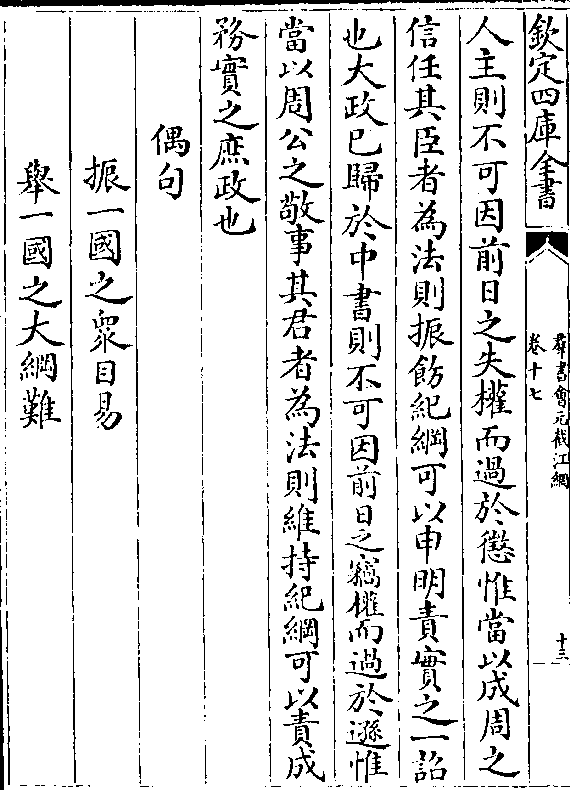 欽定四庫全書
羣書會元截江網
卷十七
十三
人主則不可因前日之失權而過於懲惟當以成周之
信任其臣者為法則振飭紀綱可以申明責實之一詔
也大政已歸於中書則不可因前日之竊權而過於遜惟
當以周公之敬事其君者為法則維持紀綱可以責成
務實之庶政也
偶句
振一國之衆目易
舉一國之大綱難